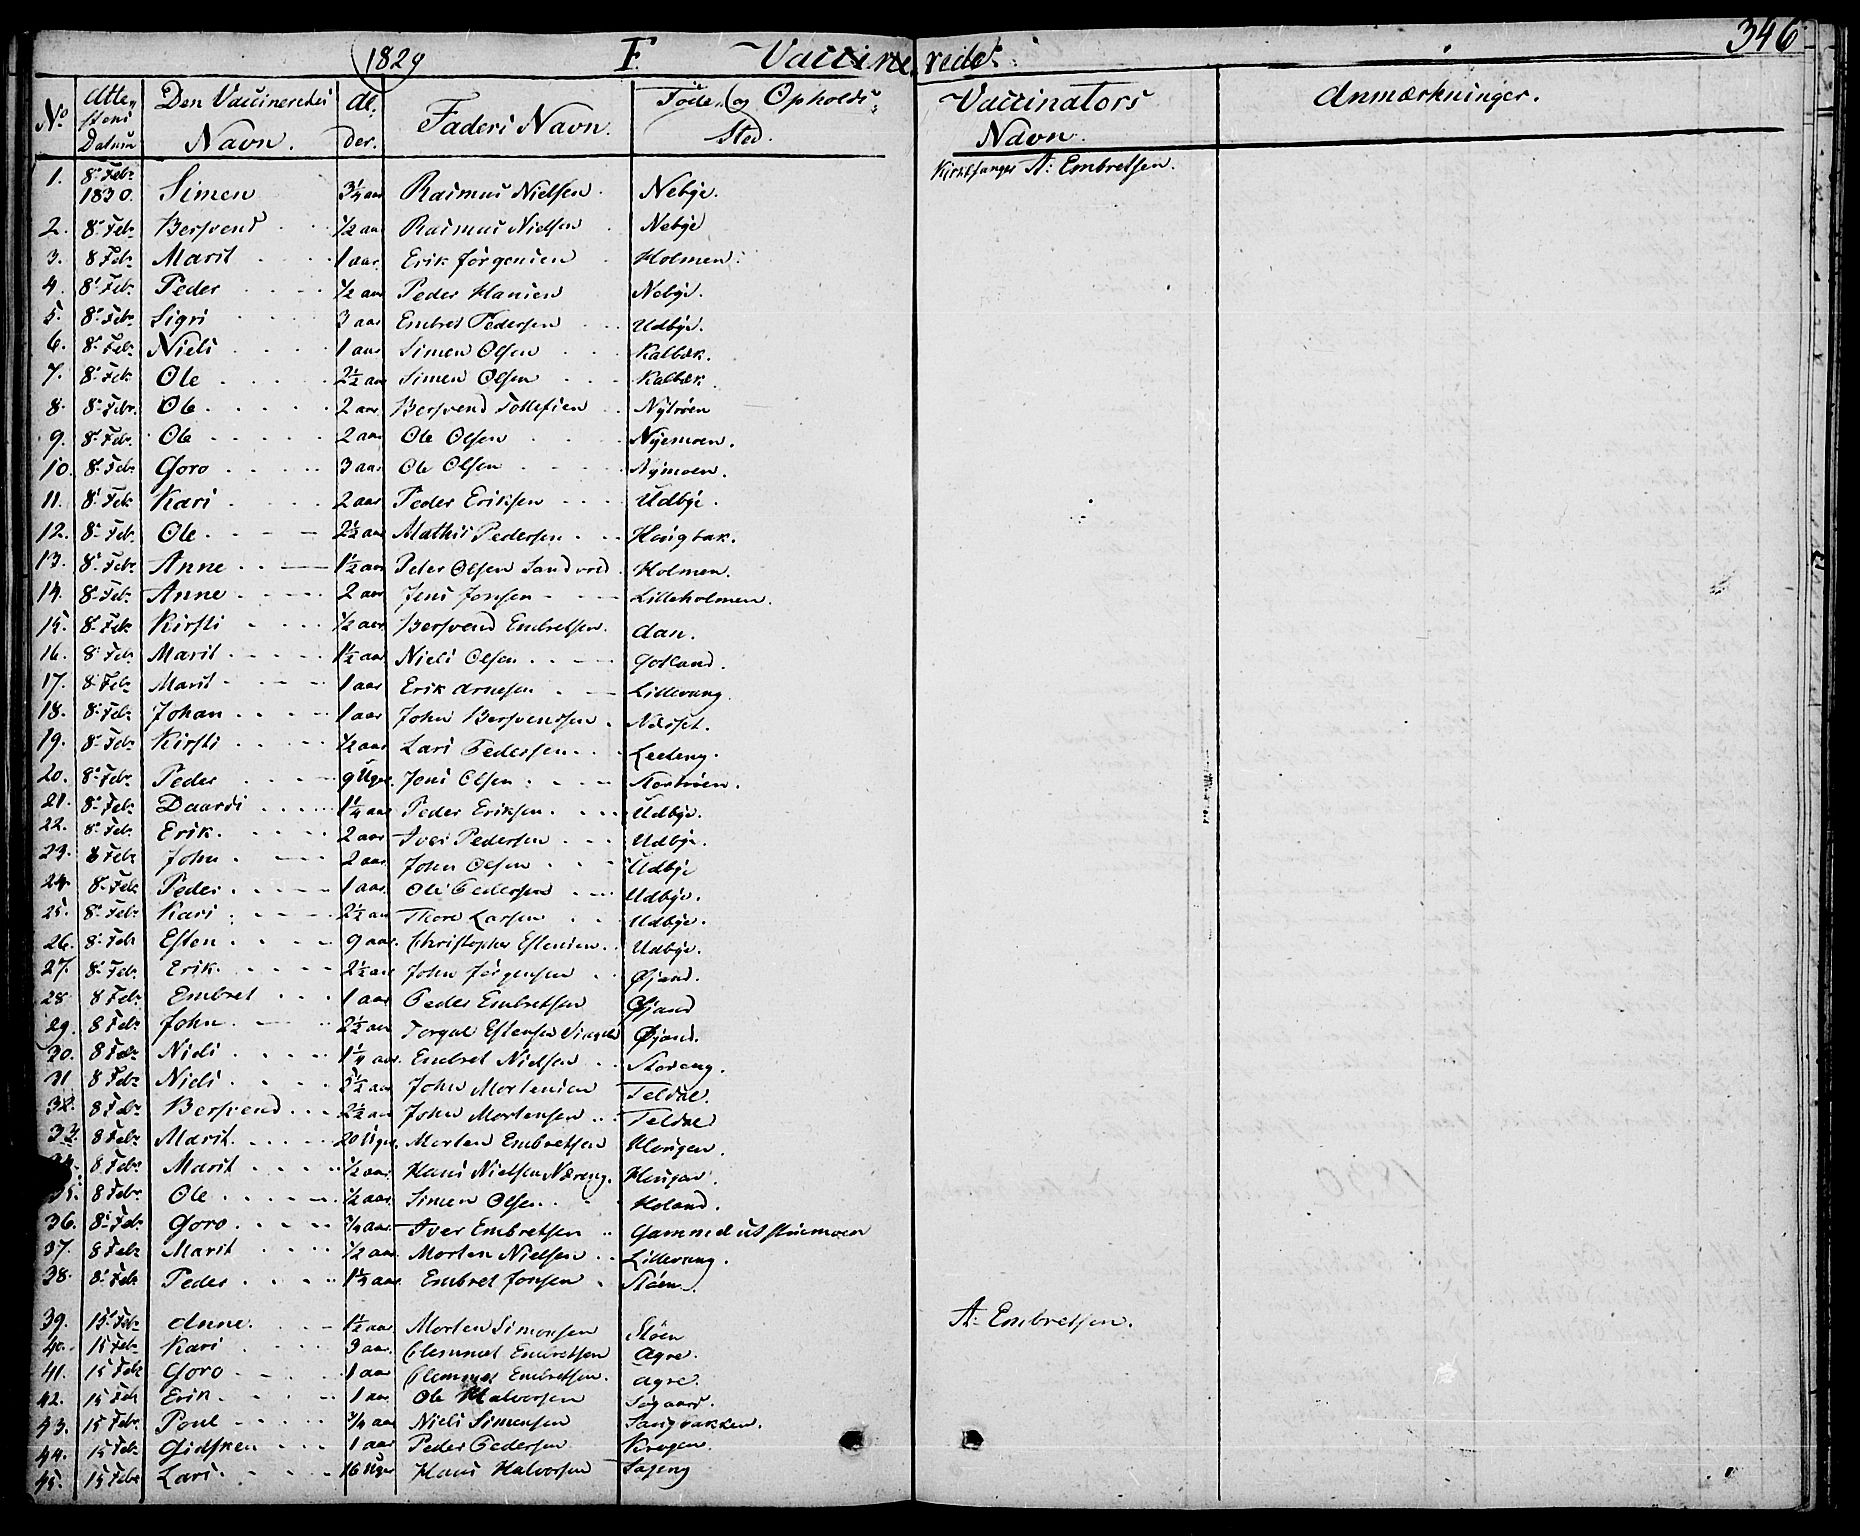 1829 F. Vaccinerede. 346
No. Attestens Datum Den Vaccineredes Navn. Alder. Faders Navn. Føde- og Opholds-Sted. Vaccinators Navn. Anmærkninger.
1. 8de Febr 1830. Simen 3/4 aar Rasmus Nielsen Nebye. Kirkesanger A: Embretsen.
2. 8de Febr Bersvend 1/2 aar Rasmus Nielsen Nebye
3. 8 Febr Marit 1 aar. Erik Jørgensen Holmen.
4. 8de Febr. Peder 1/2 aar Peder Hansen Nebye.
5. 8de Febr Sigri 3 aar Embret Pedersen Udbye.
6. 8de Febr Niels 1 aar Simen Olsen Kalbæk.
7. 8de Feb Ole 2 1/2 aar Simen Olsen Kalbæk.
8. 8de Febr. Ole 2 aar Bersvend Tollefsen Nytrøen
9. 8de Febr. Ole 2 aar Ole Olsen Nyemoen.
10. 8de Febr Goro 3 aar Ole Olsen Nymoen.
11. 8de Feb Kari 2 aar Peder Eriksen Udbye.
12. 8de Febr. Ole 2 1/2 aar Mathis Pedersen Hougbak.
13. 8de Febr Anne 1 1/2 aar Peder Olsen Sandvold Holmen.
14. 8de Feb. Anne 2 aar Jens Jonsen Lilleholmen.
15. 8de Feb Kirsti 1/2 aar Bersvend Embretsen. Aan.
16. 8de Feb. Marit 1 1/2 aar Niels Olsen Gotland.
17. 8de Febr Marit 1 aar Erik Arnesen Lillevang.
18. 8de Feb. Johan 1 aar John Bersvendsen Næsset.
19. 8de Febr Kirsti 1/2 aar Lars Pedersen Leeteng.
20. 8de Febr. Peder 9 Uger. Jens Olsen Stortrøen.
21. 8de Febr Daardi 1 1/4 aar Peder Eriksen Udbye.
22. 8de Feb. Erik. 2 aar Iver Pedersen Udbye.
23. 8 Febr John 2 aar John Olsen Udbye
24. 8de Feb Peder 1 aar Ole Pedersen Udbye.
25. 8de Febr Kari 2 1/2 aar Thore Larsen Udbye.
26. 8de Feb Esten 9 aar. Christopher Estensen Udbye.
27. 8de Feb. Erik 2 1/2 aar John Jørgensen Øjand.
28 8 Febr Embret 1 aar Peder Embretsen Øjand
29. 8 Febr John 2 1/2 aar Torgal Estensen Øjand.
30. 8 Febr Niels 1 1/4 aar. Embret Nielsen Storeng.
31 8 Febr Niels 5 1/2 aar John Mortensen Teldal.
32. 8 Febr Bersvend 2 1/2 aar John Mortensen Teldal
33. 8 Febr Marit 20 Uger. Morten Embretsen
8 Febr. Marit 1/2 aar. Hans Nielsen Næreng.
35. 8 Febr. Ole 1/2 aar. Simen Olsen Holand.
36. 8de Febr Goro 3/4 aar. Iver Embretsen
37. 8 Febr Marit 1/2 aar Morten Nielsen Lillevang.
38. 8de Febr Peder 1 1/2 aar. Embret Jonsen Støen.
39. 15de Febr Anne. 1 1/2 aar Morten Simonsen Støen A: Embretsen.
40. 15 Febr Kari 3 aar. Clemmet Embretsen Agre.
41. 15 Febr Goro 1 aar Clemmet Embretsen. Agre.
42. 15 Feb Erik 1 aar Ole Halvorsen Søgaard.
43. 15 Febr. Poul 3/4 aar Niels Simensen Haugbakken.
44. 15 Feb Gidsken 1 aar Peder Pedersen Krogen
45. 15 Febr Lars 16 Uger Hans Halvorsen